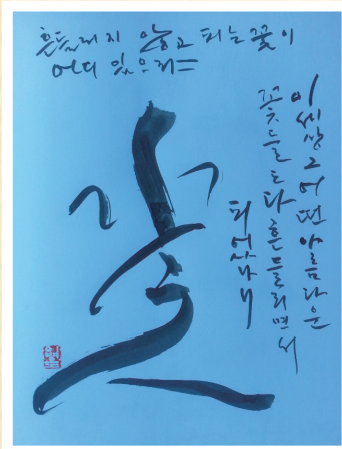 흔들리지 않고 피는 꽃이
어디 있으랴
이 세상 그 어떤 아름다운
꽃들도 다 흔들리면서
피었나니